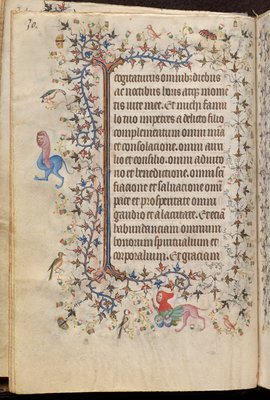 30.
cogitaturis omnibus diebus
ac noctibus horis atqz mome
tis vite mee. Et michi famu
lo tuo impetres a dilecto filio
complementum omni
et consolatione. omni
lio et consilio. omni adiuto
rio et benedictione. omni scī
ficacione et saluatione omī
pace et prosperitate omni
gaudio et alacritate. Et eciā
habundanciam omnium
bonorum spiritualium et
corporalium. Et graciam